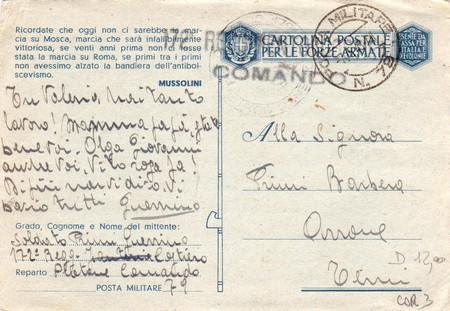 Ricordate che oggi non ci sarebbe
cia su Mosca, marcia che sarà infallibilmente
vittoriosa, se venti anni prima non ci fosse
stata la marcia su Roma, se primi tra i primi
non avessimo alzato la bandiera dell'antibol-
scevismo.
MUSSOLINI
Tu Valeria hai tanto
lavoro! Mamma papà, state
bene voi. Olga Giovanni
anche voi. Vito
Di più non vi dico. Vi
bacio tutti Guerrino
Grado, Cognome e Nome del mittente:
Soldato Primi Guerrino
172° Regg. Costiero
Reparto Plotone Comando
POSTA MILITARE 79
CARTOLINA POSTALE
PER LE FORZE ARMATE
ESENTE DA
TASSA PER
L'ITALIA E
COLONIE
POSTA MILITARE
N.
COMANDO
Alla Signora
Primi Barbera
Arrone
Terni
D 12,00
COR 3